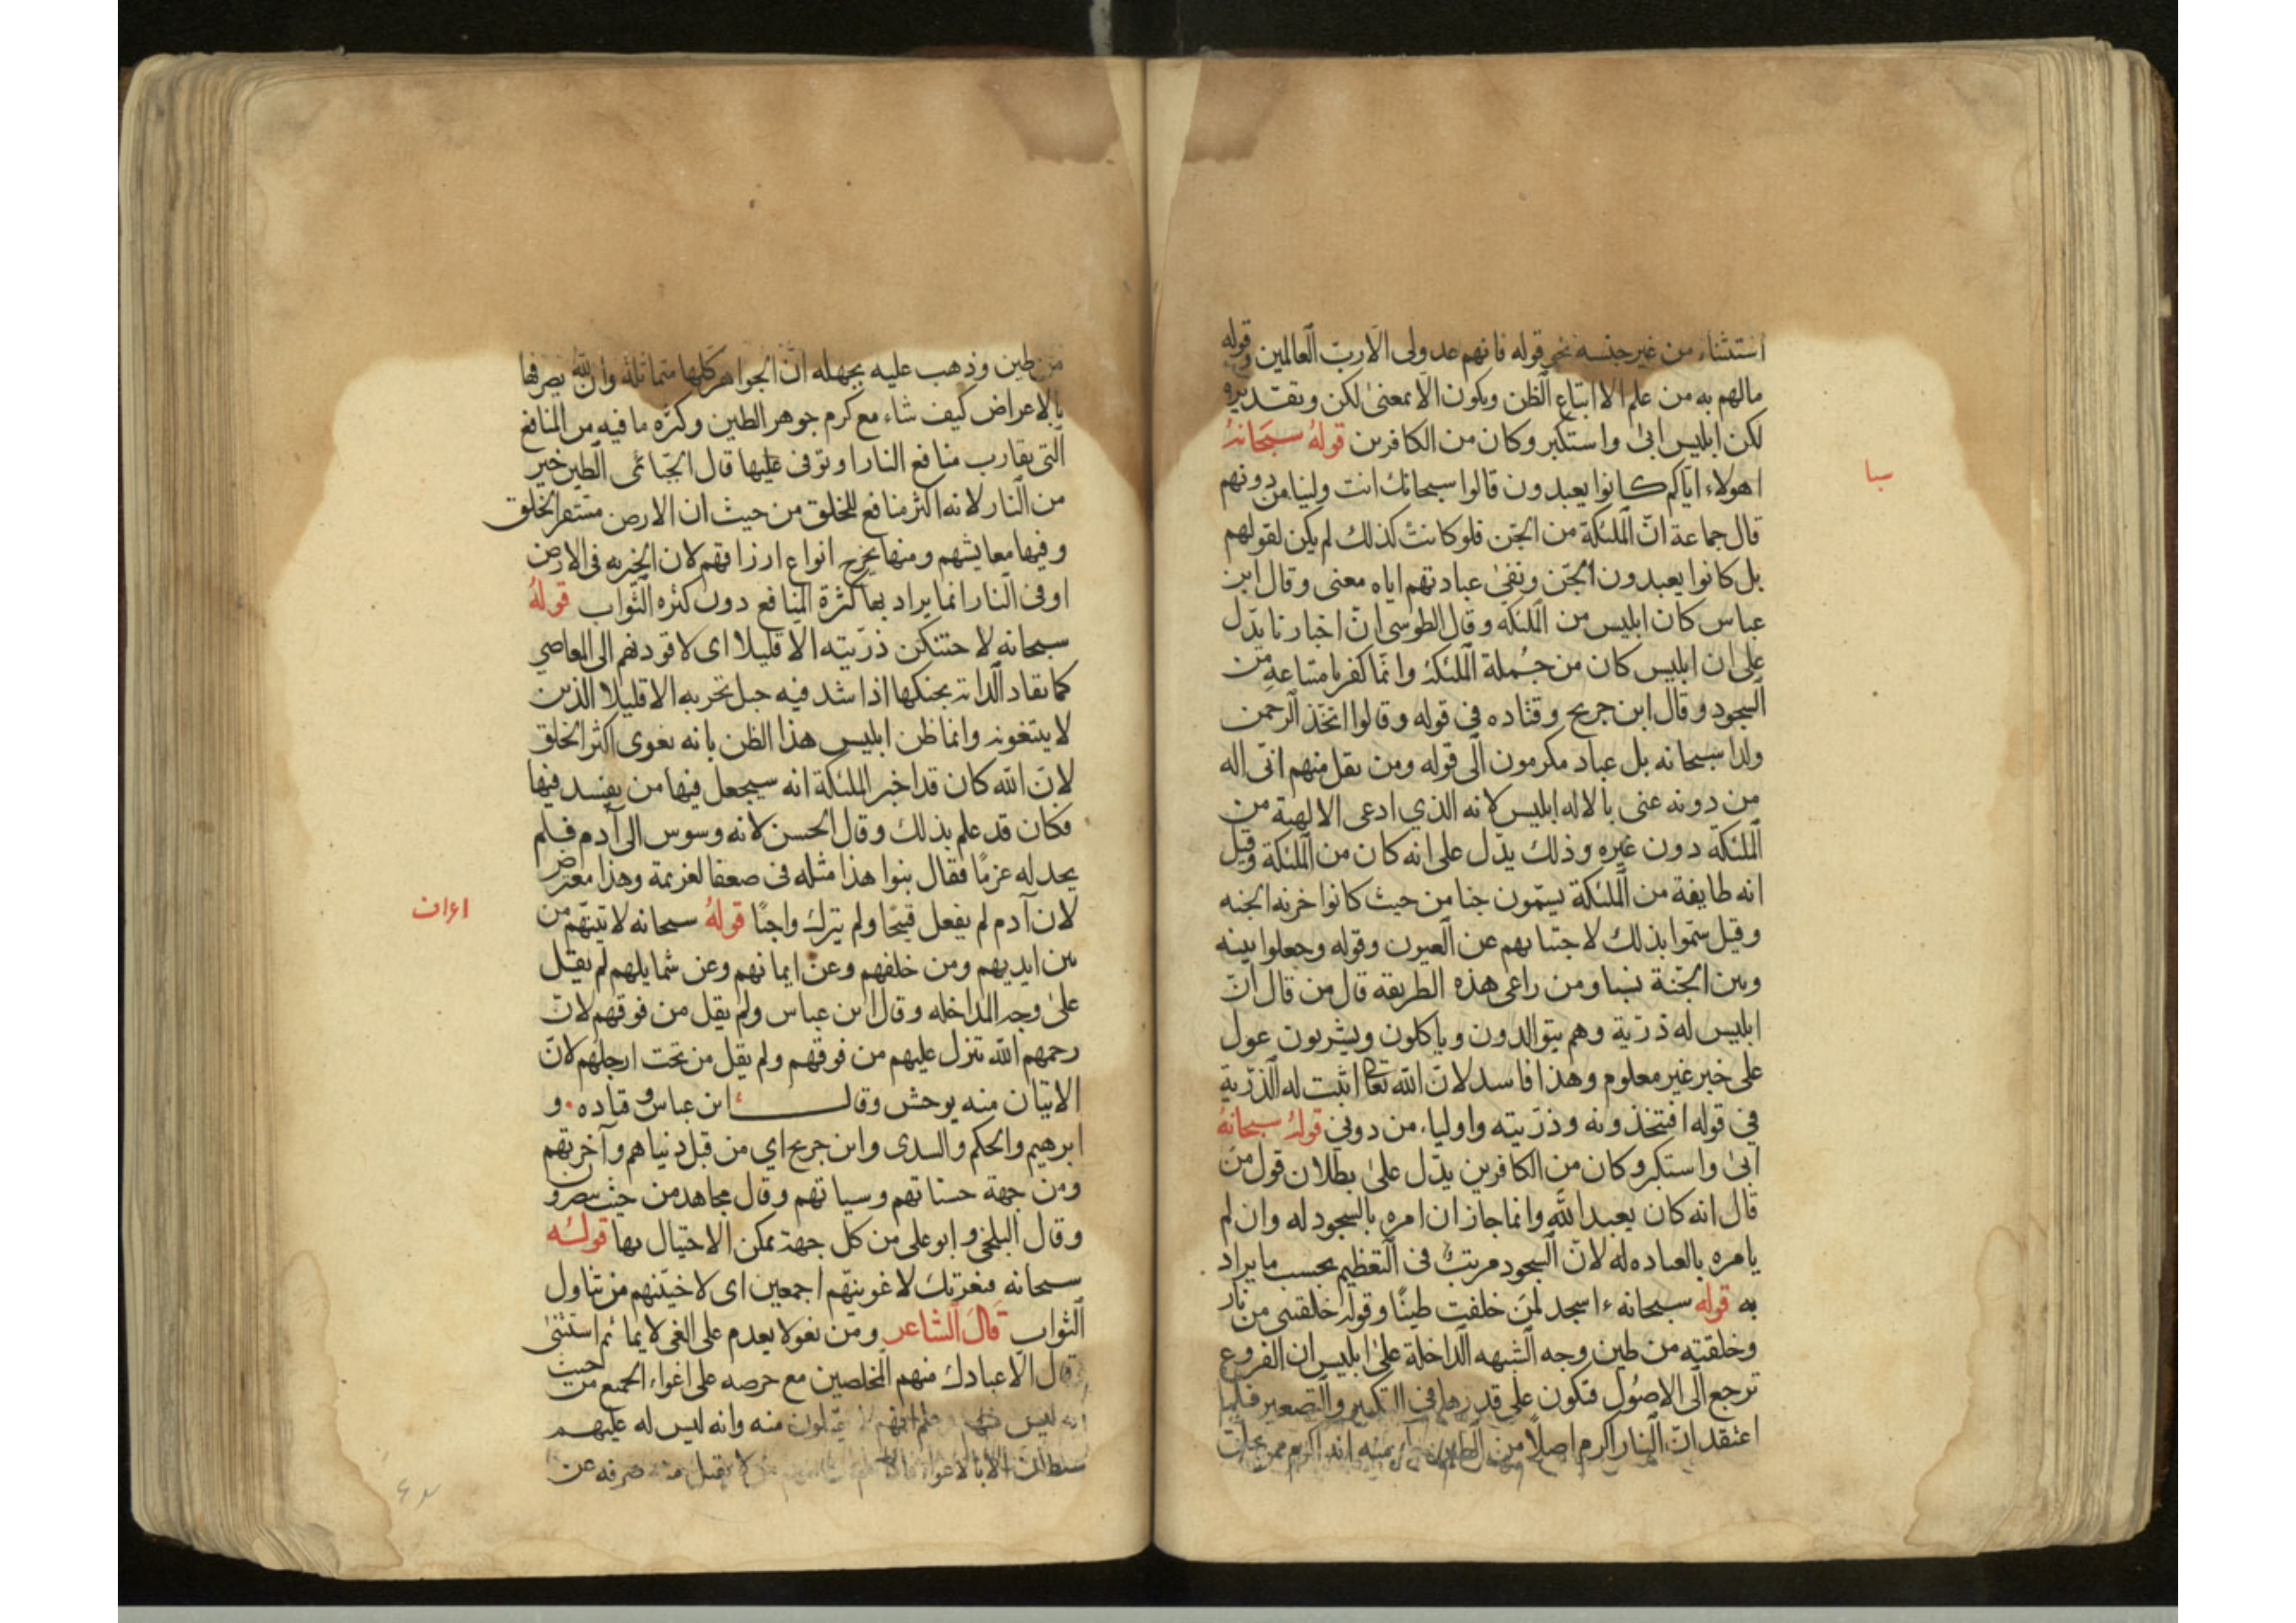 استثناء من غير جنسه نحو قوله فانهم عدو لى الا رب العالمين وقوله
مالهم به من علم الا اتباع الظن ويكون الا بمعنى لكن وتقديره
لكن ابليس ابى واستكبر وكان من الكافرين قوله سبحانه
سبا
اهولاء اياكم كانوا يعبدون قالوا سبحانك انت ولينا من دونهم
قال جماعة ان الملئكة من الجن فلو كانت كذلك لم يكن لقولهم
بل كانوا يعبدون الجن ونفى عبادتهم اياه معنى وقال ابن
عباس كان ابليس من الملئكه وقال الطوسى ان اخبارنا يدل
على ان ابليس كان من جملة الملئكة وانما كفر بامتناعه من
السجود وقال ابن جريح وقتاده في قوله وقالوا اتخذ الرحمن
ولدا سبحانه بل عباد مكرمون الى قوله ومن يقل منهم انى اله
من دونه عنى بالاله ابليس لانه الذي ادعى الالهية من
الملئكة دون غيره وذلك يدل على انه كان من الملئكة وقيل
انه طايفة من الملئكة يسمون جنا من حيث كانوا خزنه الجنه
وقيل سموا بذلك لاجتنابهم عن العيون وقوله وجعلوا بينه
وبين الجنة نسبا ومن راعى هذه الطريقه قال من قال ان
ابليس له ذرية وهم يتوالدون وياكلون ويشربون عول
على خبر غير معلوم وهذا فاسد لان الله تعالى اثبت له الذرية
في قوله افتتخذونه وذريته واولياء من دوني قوله سبحانه
ابى واستكبر وكان من الكافرين يدل على بطلان قول من
قال انه كان يعبد الله وانما جاز ان امره بالسجود له وان لم
يامره بالعباده له لان السجود مرتب في التعظيم بحسب ما يراد
به قوله سبحانه ءاسجد لمن خلقت طينا وقوله خلقتنى من نار
وخلقته من طين وجه الشبهه الداخلة على ابليس ان الفروع
ترجع الى الاصول فتكون على قدرها في التكبير والتصغير فلما
اعتقد ان النار اكرم اصلا من الطين
من طين وذهب عليه بجهله ان الجواهر كلها متماثلة وان الله يصرفها
بالاعراض كيف شاء مع كرم جوهر الطين وكثره ما فيه من المنافع
التى يقارب منافع النار او توفى عليها قال الجبائى الطين خير
من النار لانه اكثر منافع للخلق من حيث ان الارض مستقر الخلق
وفيها معايشهم ومنها يخرج انواع ارزاقهم لان الخيريه في الارض
او في النار انما يراد بها كثرة المنافع دون كثره الثواب قوله
سبحانه لاحتنكن ذريته الا قليلا اى لاقودنهم الى المعاصي
كما يقاد الدابة بحنكها اذا شد فيه حبل تجر به الا قليلا الذين
لا يتبعونه وانما ظن ابليس هذا الظن بانه يغوى اكثر الخلق
لان الله كان قد اخبر الملئكة انه سيجعل فيها من يفسد فيها
فكان قد علم بذلك وقال الحسن لانه وسوس الى آدم فلم
يجد له عزما فقال بنوا هذا مثله في ضعف العزيمة وهذا معترض
لان آدم لم يفعل قبيحا ولم يترك واجبا قوله سبحانه لاتينهم من
اعراف
بين ايديهم ومن خلفهم وعن ايمانهم وعن شمايلهم لم يقل
على وجه المداخله وقال ابن عباس ولم يقل من فوقهم لان
رحمهم الله تنزل عليهم من فوقهم ولم يقل من تحت ارجلهم لان
الاتيان منه يوحش وقال ابن عباس وقتاده و
ابرهيم والحكم والسدى وابن جريح اي من قبل دنياهم وآخرتهم
ومن جهة حسناتهم وسياتهم وقال مجاهد من حيث يبصرون
وقال البلخى وابو على من كل جهة يمكن الاحتيال بها قوله
سبحانه فبعزتك لاغوينهم اجمعين اى لاخيبنهم من تناول
الثواب قال الشاعر ومن يغو لا يعدم على الغى لايما ثم استثنى
فقال الا عبادك منهم المخلصين مع حرصه على اغواء الجميع من حيث
انه ليس منه وانه ليس له عليهم
سلطان الا بالاغواء لا يقبل منه صرفه عن